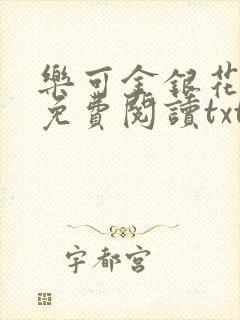 樂可金銀花
免費閱讀txt
宇都宮